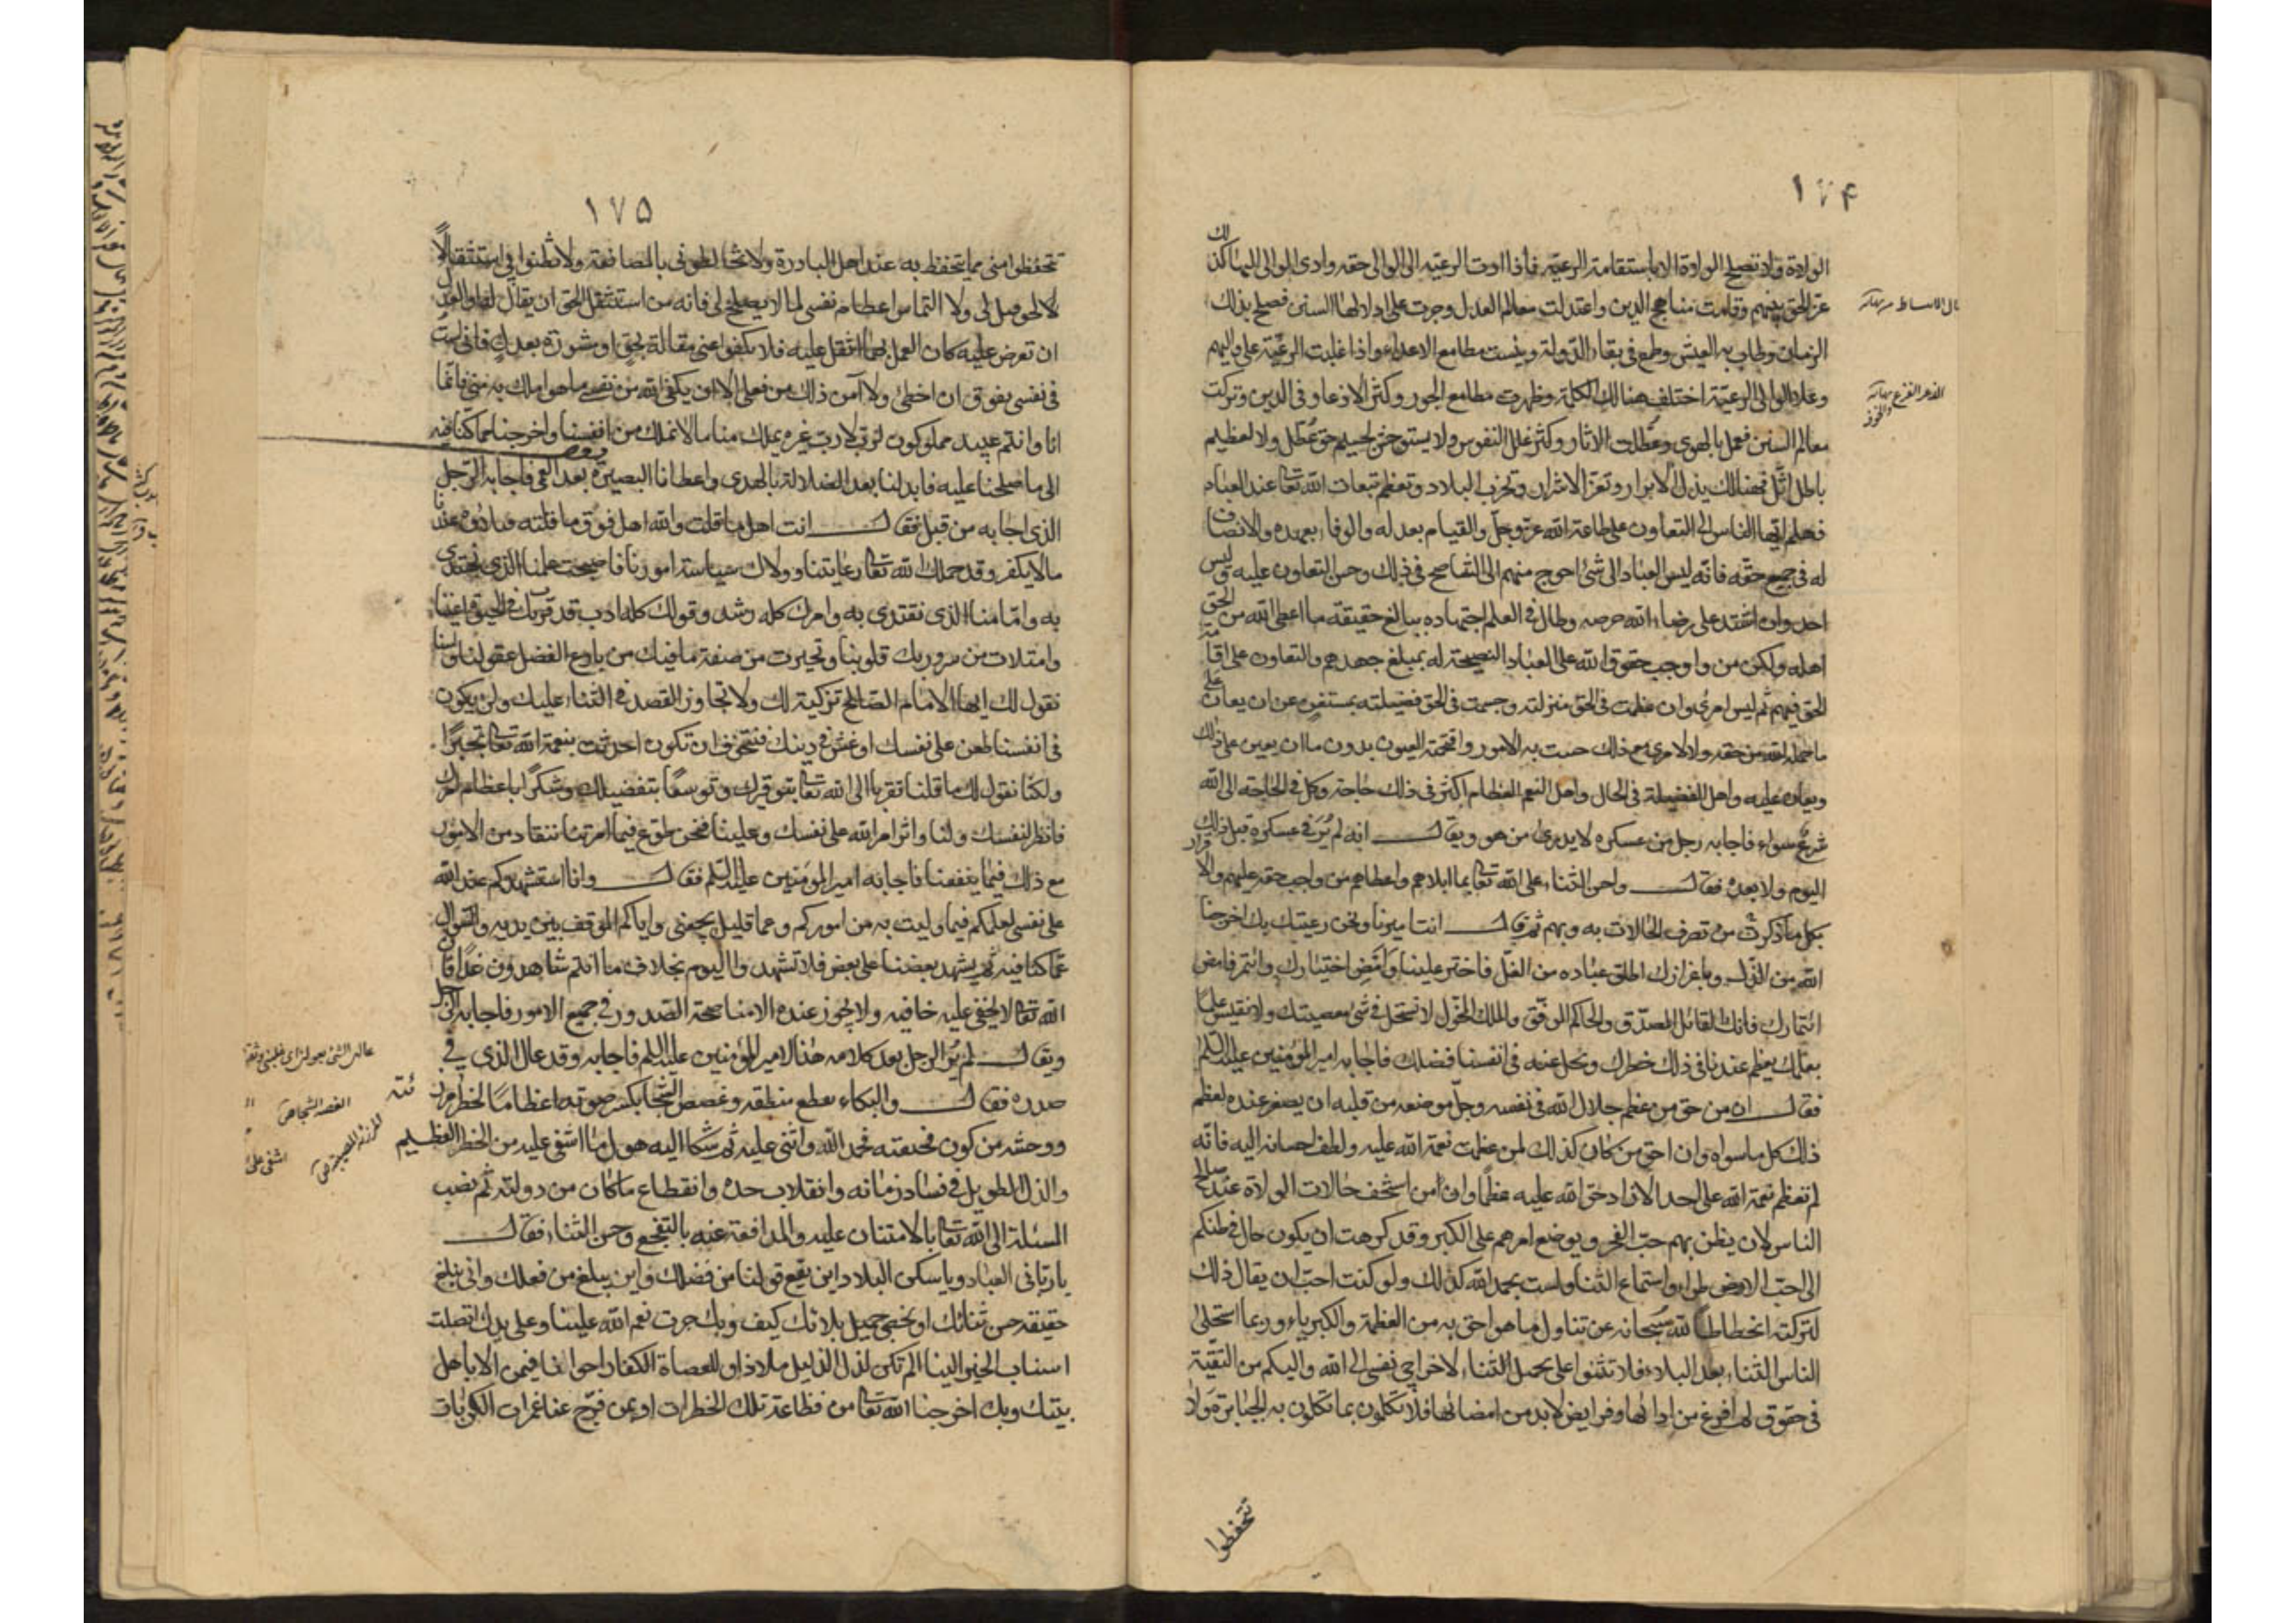 ۱۷۴
الولاة ولا تصلح الولاة الا باستقامة الرعيّة فاذا ادت الرعيّة الى الوالى حقه وادى الوالى اليها كذلك
عزّ الحق بينهم وقامت مناهج الدين واعتدلت معالم العدل وجرت على اذلالها السنن فصلح بذلك
الزمان وطاب به العيش وطمع فى بقاء الدّولة ويئست مطامع الاعداء واذا غلبت الرعيّة على واليهم
وعلا الوالى الرعيّة اختلفت هنالك الكلمة وظهرت مطامع الجور وكثر الادغال فى الدين وتركت
معالم السنن فعمل بالهوى وعطّلت الاثار وكثر علل النفوس ولا يستوحش لجسيم حق عُطّل ولا لعظيم
باطل اثّل فهنالك يذلّ الابرار وتعزّ الاشرار وتخرب البلاد وتعظم تبعات الله تعا عند العباد
فهلم ايّها الناس الى التعاون على طاعة الله عزّ وجلّ والقيام بعدله والوفاء بعهده والانصاف
له فى جميع حقّه فانّه ليس العباد الى شئ احوج منهم الى التناصح فى ذلك وحسن التعاون عليه وليس
احد وان اشتد على رضاء الله حرصه وطال فى العلم اجتهاده ببالغ حقيقة ما اعطى الله من الحق
اهله ولكن من واجب حقوق الله على العباد النصيحة له بمبلغ جهدهم والتعاون على اقامة
الحق فيهم ثم ليس امرئ وان عظمت فى الحق منزلته وجسمت فى الحق فضيلته بمستغن عن ان يعان على
ما حمله الله من حقه ولا لامرئ مع ذلك خست به الامور واقتحمته العيون بدون ما ان يعين على ذلك
ويعان عليه واهل الفضيلة فى الحال واهل النعم العظام اكثر فى ذلك حاجة وكل فى الحاجة الى الله
شرعٌ سواء فاجابه رجل من عسكره لا يدرى من هو ويقال انه لم يُرَ فى عسكره قبل ذلك
اليوم ولا بعده فقال واحسن الثناء على الله تعا بما ابلاهم واعطاهم من واجب حقه عليهم والاقرار
بكل ما ذكرت من تصرف الحالات به وبهم ثم قال انت اميرنا ونحن رعيتك بك اخرجنا
الله من الذّل وباعزازك اطلق عباده من الغلّ فاختر علينا وامض اختيارك وائتمر فامض
ائتمارك فانك القائل المصدّق والحاكم الموفّق والملك المخوّل لا نستحل فى شئ معصيتك ولا نقيس علما
بعلمك يعظم عندنا فى ذلك خطرك ويجل عنه فى انفسنا فضلك فاجابه امير المؤمنين عليه السّلم
فقال ان من حق من عظم جلال الله فى نفسه وجلّ موضعه من قلبه ان يصغر عنده لعظم
ذلك كل ما سواه وان احق من كان كذلك لمن عظمت نعمة الله عليه ولطف احسانه اليه فانّه
لم تعظم نعمة الله على احد الا زاد حق الله عليه عظمًا وان من اسخف حالات الولاة عند صالح
الناس ان يظن بهم حبّ الفخر ويوضع امرهم على الكبر وقد كرهت ان يكون جال فى ظنكم
انى احب الاطراء واستماع الثناء ولست بحمد الله كذلك ولو كنت احب ان يقال ذلك
لتركته انحطاطًا لله سُبحانه عن تناول ما هو احق به من العظمة والكبرياء وربما استحلى
الناس الثناء بعد البلاء فلا تثنوا على بجميل الثناء لاخراجى نفسى الى الله واليكم من التقيّة
فى حقوق لم افرغ من ادائها وفرايض لابد من امضائها فلا تكلمونى بما تكلون به الجبابرة ولا
تتحفظوا
۱۷۵
تتحفظوا منى مما يتحفظ به عند اهل البادرة ولا تخالطونى بالمصانعة ولا تظنوا بى استثقالًا
لالحق قيل لى ولا التماس اعظام نفسى لما لا يصلح لى فانه من استثقل الحق ان يقال له او العدل
ان تعرض عليه كان العمل بهما اثقل عليه فلا تكفوا عنى مقالة بحق او مشورة بعدل فانى لست
فى نفسى بفوق ان اخطئ ولا آمن ذلك من فعلى الا ان يكفى الله من نفسى ما هو املك به منى فانّما
انا وانتم عبيد مملوكون لربّ لا ربّ غيره يملك منا ما لا نملك من انفسنا واخرجنا مما كنّا فيه
الى ما صلحنا عليه فابدلنا بعد الضلالة بالهدى واعطانا البصيرة بعد العمى فاجابه الرّجل
الذى اجابه من قبل فقال انت اهل ما قلت والله اهل فوق ما قلته فبلاؤه عندنا
ما لا يكفر وقد حملك الله تعا رعايتنا وولاك سياسة امورنا فاصبحت علمنا الذى نهتدى
به وامامنا الذى نقتدى به وامرك كله رشد وقولك كله ادب قد قرت بك فى الحيوة اعيننا
وامتلات من سرورك قلوبنا وتحيرت من صفة ما فيك من بارع الفضل عقولنا ولسنا
نقول لك ايها الامام الصّالح تزكية لك ولا نجاوز القصد فى الثناء عليك ولن يكون
فى انفسنا طعن على نفسك او غش فى دينك فنتخوف ان تكون احدثت بنعمة الله تعا تجبّرًا
ولكنّا نقول لك ما قلنا تقربا الى الله تعا بتوقيرك وتوسعًا بتفضيلك وشكرًا باعظام امرك
فانظر لنفسك ولنا واثر امر الله على نفسك وعلينا فنحن طوّع فيما امرتنا ننقاد من الامور
مع ذلك فيما ينفعنا فاجابه امير المؤمنين عليه السّلم فقال وانا استشهدكم عند الله
على نفسى لعلمكم فيما وليت به من اموركم وعما قليل يجمعنى واياكم الموقف بين يديه والسّؤال
عمّا كنا فيه ثم يشهد بعضنا على بعض فلا تشهدوا اليوم بخلاف ما انتم شاهدون غدًا فان
الله تعا لا يخفى عليه خافيه ولا يجوز عنده الا مناصحة الصّدور فى جميع الامور فاجابه الرّجل
ويقال لم يُرَ الرجل بعد كلامه هذا لامير المؤمنين عليه السّلم فاجابه وقد عال الذى فى
صدره فقال والبكاء يقطع منطقه وغصص الشّجا يكسر صوته اعظامًا لخطر مرزئته
ووحشة من كون فجيعته فحمد الله واثنى عليه ثم شكا اليه هول ما اشفى عليه من الخطر العظيم
والذل الطويل فى فساد زمانه وانقلاب حده وانقطاع ما كان من دولته ثم نصب
المسئلة الى الله تعا بالامتنان عليه والمدافعة عنه بالتفجع وحسن الثناء فقال
يا ربّانى العباد ويا سكن البلاد اين يقع قولنا من فضلك واين يبلغ من فعلك وانى نبلغ
حقيقة حسن ثنائك او نحصى جميل بلائك كيف وبك جرت نعم الله علينا وعلى يدك اتصلت
اسباب الخير الينا الم تكن لذل الذليل ملاذا وللعصاة الكفار اخوانا فبمن الا باهل
بيتك وبك اخرجنا الله تعا من فظاعة تلك الخطرات او بمن فرّج عنا غمرات الكربات